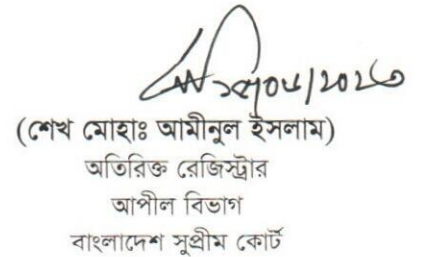 (শেখ মোহাঃ আমীনুল ইসলাম)
অতিরিক্ত রেজিস্ট্রার
আপীল বিভাগ
বাংলাদেশ সুপ্রীম কোর্ট